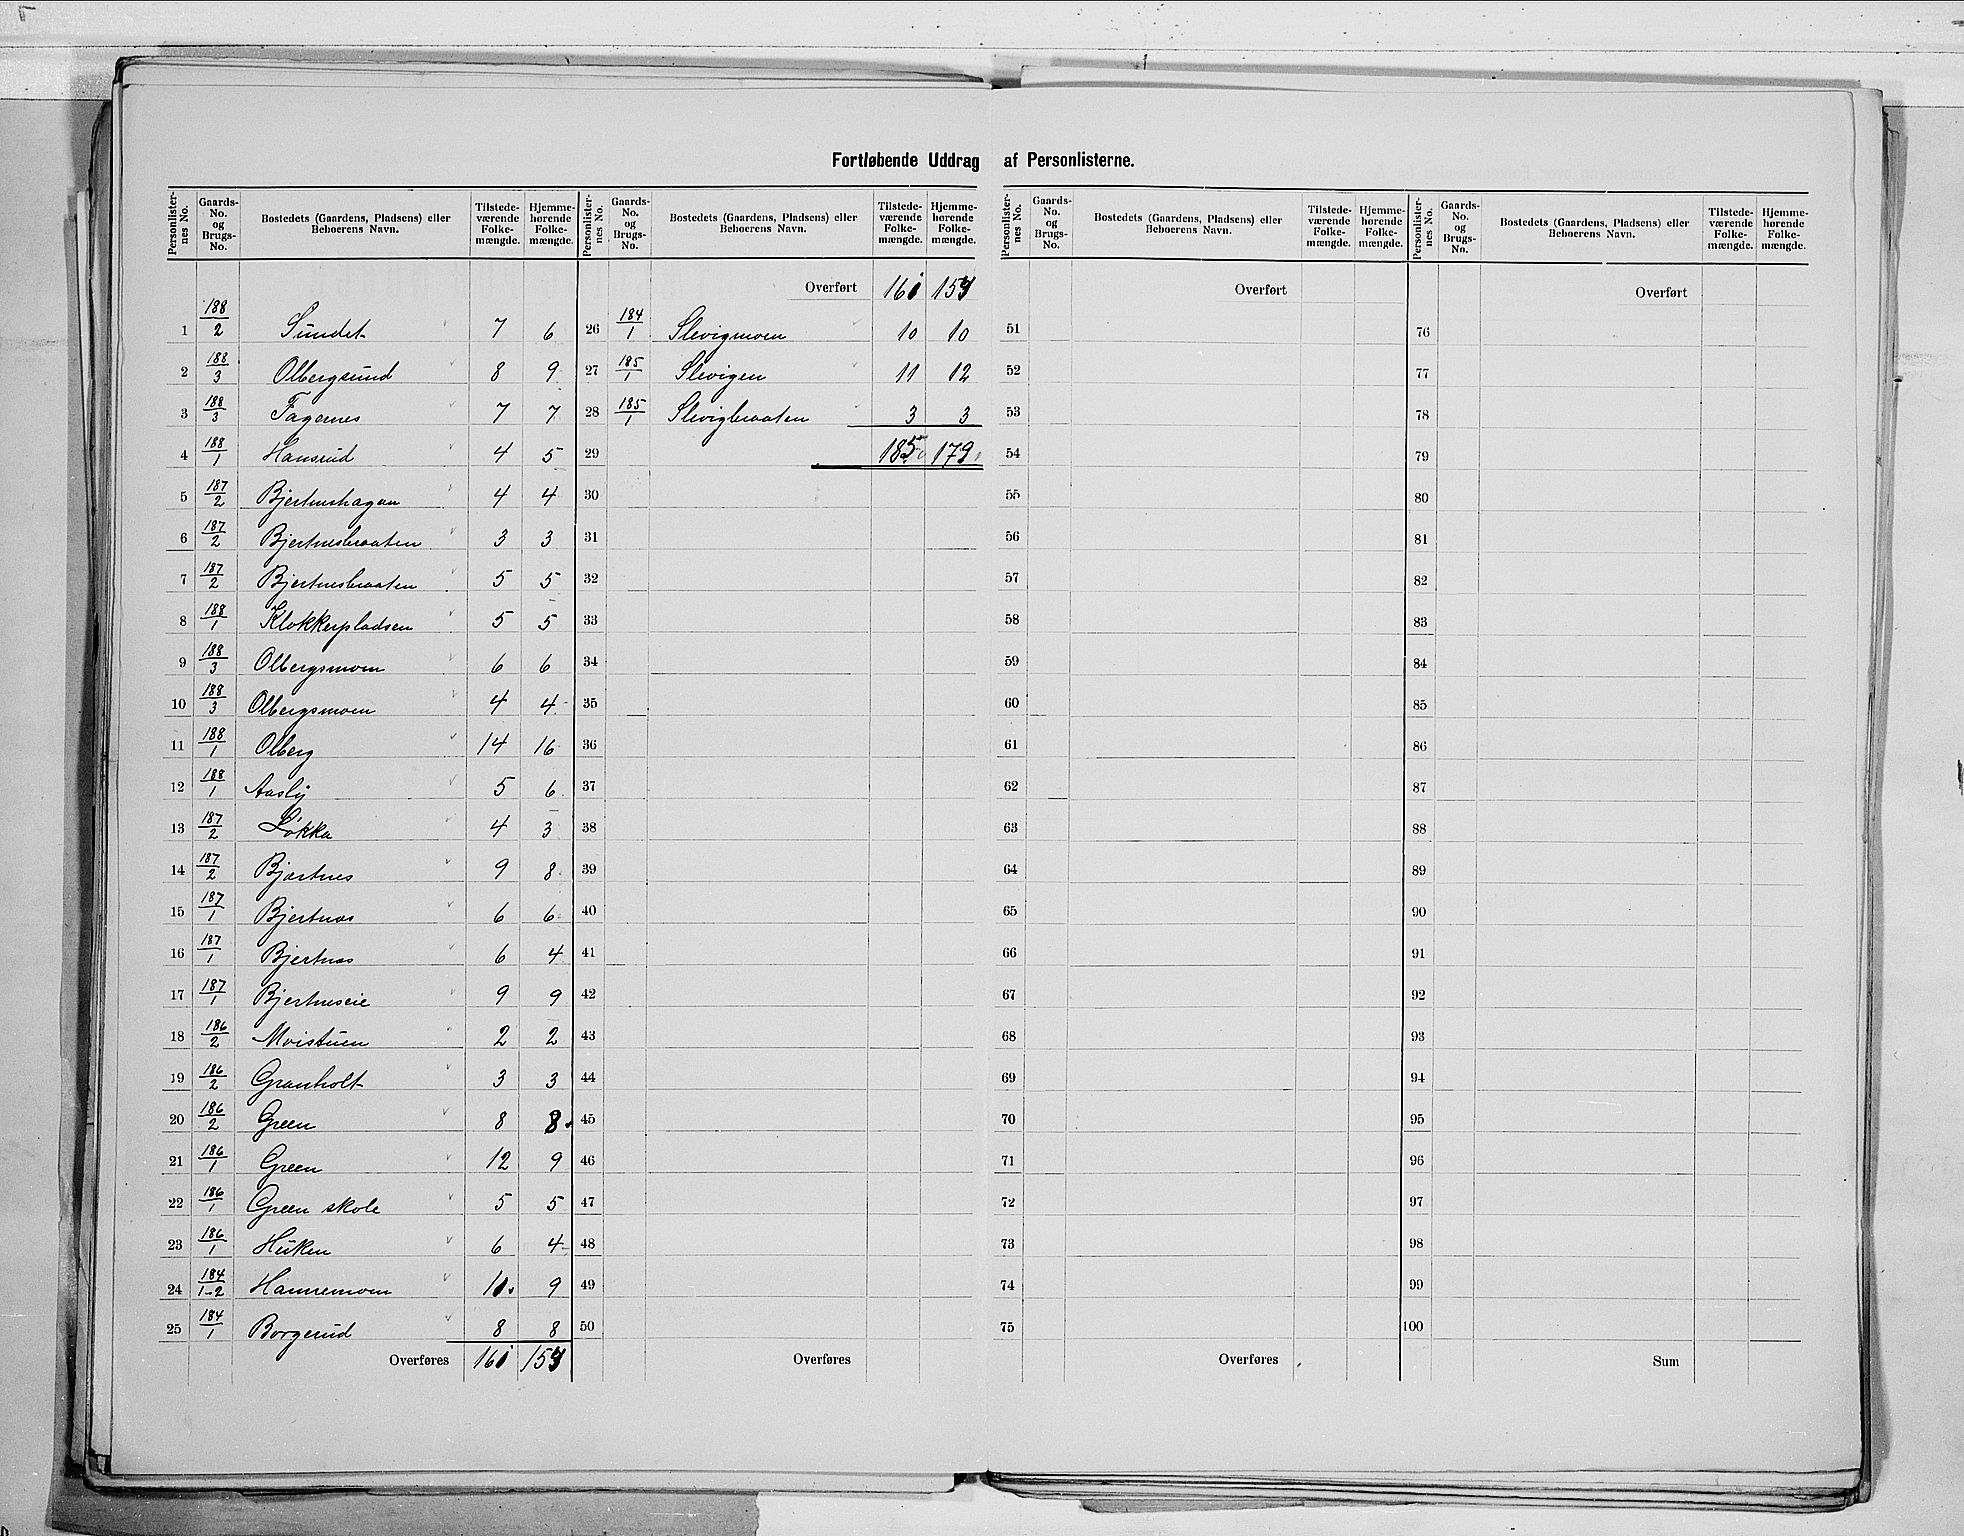 Fortløbende Uddrag af Personlisterne.
Personlister-nes No. | Gaards-No. og Brugs-No. | Bostedets (Gaardens, Pladsens) eller Beboerens Navn. | Tilstede-værende Folke-mængde. | Hjemme-hørende Folke-mængde. | Personlister-nes No. | Gaards-No. og Brugs-No. | Bostedets (Gaardens, Pladsens) eller Beboerens Navn. | Tilstede-værende Folke-mængde. | Hjemme-hørende Folke-mængde. | Personlister-nes No. | Gaards-No. og Brugs-No. | Bostedets (Gaardens, Pladsens) eller Beboerens Navn. | Tilstede-værende Folke-mængde. | Hjemme-hørende Folke-mængde. | Personlister-nes No. | Gaards-No. og Brugs-No. | Bostedets (Gaardens, Pladsens) eller Beboerens Navn. | Tilstede-værende Folke-mængde. | Hjemme-hørende Folke-mængde.
Overført 161 | Overført | Overført
1 188/2 Sundet 7 6 | 26 184/1 Slevigmoen 10 10 | 51 | 76
2 188/3 Olbergsund 8 9 | 27 185/1 Slevigen 11 12 | 52 | 77
3 188/3 Fagernes 7 7 | 28 185/1 Slevigbraaten 3 3 | 53 | 78
4 188/1 Hansrud 4 5 | 29 185 179 | 54 | 79
5 187/2 Bjertneshagen 4 4 | 30 | 55 | 80
6 187/2 Bjertnesbraaten 3 3 | 31 | 56 | 81
7 187/2 Bjertnesbraaten 5 5 | 32 | 57 | 82
8 188/1 Klokkerpladsen 5 5 | 33 | 58 | 83
9 188/3 Olbergsmoen 6 6 | 34 | 59 | 84
10 188/3 Olbergsmoen 4 4 | 35 | 60 | 85
11 188/1 Olberg 14 16 | 36 | 61 | 86
12 188/1 Aasly 5 6 | 37 | 62 | 87
13 187/2 Løkka 4 3 | 38 | 63 | 88
14 187/2 Bjertnes 9 8 | 39 | 64 | 89
15 187/1 Bjertnæs 6 6 | 40 | 65 | 90
16 187/1 Bjertnæs 6 4 | 41 | 66 | 91
17 187/1 Bjertneseie 9 9 | 42 | 67 | 92
18 186/2 Moistuen 2 2 | 43 | 68 | 93
19 186/2 Granholt 3 3 | 44 | 69 | 94
20 186/2 Green 8 8 | 45 | 70 | 95
21 186/1 Green 12 9 | 46 | 71 | 96
22 186/1 Green skole 5 5 | 47 | 72 | 97
23 186/1 Huken 6 4 | 48 | 73 | 98
24 184/1-2 9 | 49 | 74 | 99
25 184/1 Borgerud 8 8 | 50 | 75 | 100
Overføres 161 | Overføres | Overføres | Sum